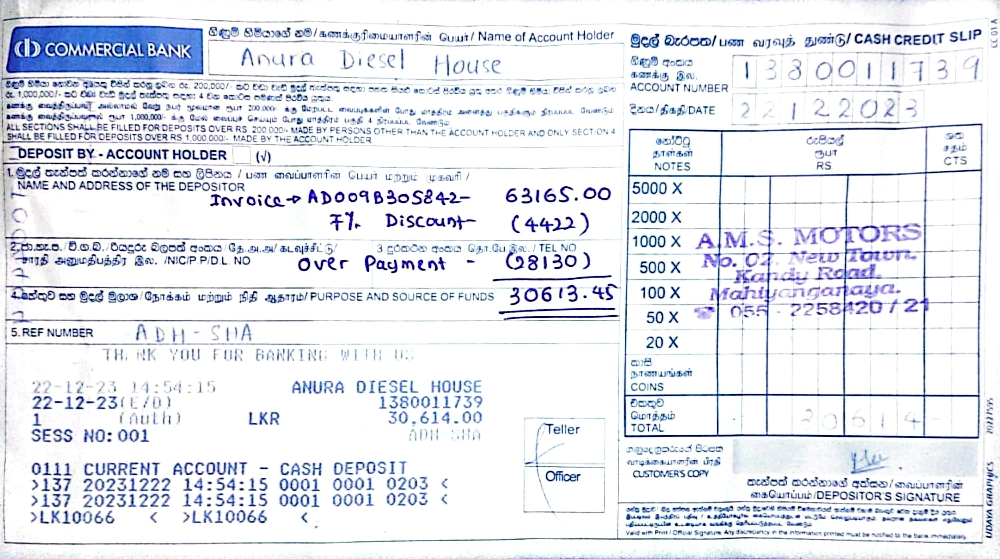 COMMERCIAL BANK
ගිණුම් හිමියාගේ නම/கணக்குரிமையாளரின் பெயர்/ Name of Account Holder
Anura Diesel House
මුදල් බැරපත/பண வரவுத் துண்டு/ CASH CREDIT SLIP
CC 01 A
ගිණුම් අංකය
கணக்கு இல.
ACCOUNT NUMBER
1380011739
දිනය/திகதி/DATE
22122023
ALL SECTIONS SHALL BE FILLED FOR DEPOSITS OVER RS. 200,000/- MADE BY PERSONS OTHER THAN THE ACCOUNT HOLDER AND ONLY SECTION 4
SHALL BE FILLED FOR DEPOSITS OVER RS 1,000,000/- MADE BY THE ACCOUNT HOLDER
DEPOSIT BY - ACCOUNT HOLDER (√)
1. මුදල් තැන්පත් කරන්නාගේ නම සහ ලිපිනය / பண வைப்பாளரின் பெயர் மற்றும் முகவரி /
NAME AND ADDRESS OF THE DEPOSITOR
Invoice → AD009B305842- 63165.00
7% Discount (4422)
3.දුරකථන අංකය தொ.பே.இல. / TEL NO
/NIC/P.P/D.L NO
Over Payment - (28130)
4. හේතුව සහ මුදල් මූලාශ්‍ර/நோக்கம் மற்றும் நிதி ஆதாரம்/PURPOSE AND SOURCE OF FUNDS
30613.45
5. REF NUMBER
ADH-SHA
THANK YOU FOR BANKING WITH US
22-12-23 14:54:15 ANURA DIESEL HOUSE
22-12-23(E/D) 1380011739
1 (Auth) LKR 30,614.00
SESS NO: 001 ADH SHA
0111 CURRENT ACCOUNT - CASH DEPOSIT
>137 20231222 14:54:15 0001 0001 0203 <
>137 20231222 14:54:15 0001 0001 0203 <
>LK10066 < >LK10066 <
Teller
Officer
නෝට්ටු රුපියල් ශත
தாள்கள் ரூபா சதம்
NOTES RS CTS
5000 X
2000 X
1000 X
500 X
100 X
50 X
20 X
A.M.S. MOTORS
No. 02, New Town,
Kandy Road,
Mahiyanganaya.
☎ 055 - 2258420 / 21
කාසි
நாணயங்கள்
COINS
එකතුව
மொத்தம்
TOTAL
30614-
ගනුදෙනුකරුගේ පිටපත
வாடிக்கையாளரின் பிரதி
CUSTOMER'S COPY
තැන්පත් කරන්නාගේ අත්සන/வைப்பாளரின்
கையொப்பம்/DEPOSITOR'S SIGNATURE
Valid with Print / Official Signature. Any discrepancy in the information printed must be notified to the bank immediately.
UDAYA GRAPHICS